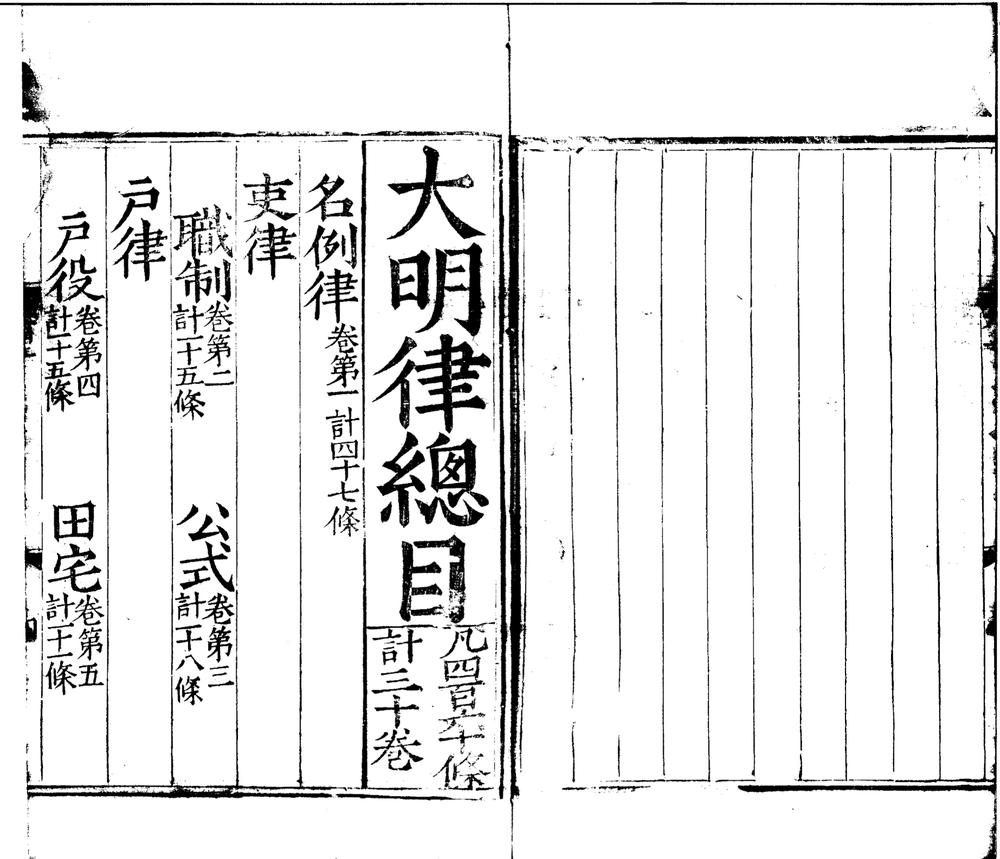 大明律總目
凡四百六十條
計三十卷
名例律
卷第一計四十七條
吏律
職制
卷第二
計一十五條
公式
卷第三
計一十八條
户律
户役
卷第四
計一十五條
田宅
卷第五
計一十一條